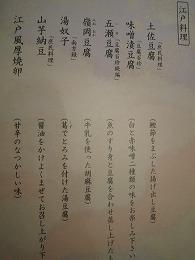 江戸料理
土佐豆腐 「庶民料理」 (鰹節をまぶした揚げ出し豆腐)
味噌漬豆腐 「豆腐百珍」 (白と赤味噌二種類の味をお楽しみ下さい)
五瀬豆腐 「豆腐百珍続編」 (魚のすり身と豆腐を合わせ蒸し上げた
嶺岡豆腐 (牛乳を使った胡麻豆腐)
湯奴子 (葛でとろみを付けた湯豆腐)
山芋納豆 「庶民料理」 (醤油をかけよくまぜてお召し上がり下
江戸風厚焼卵 (甘辛のなつかしい味)